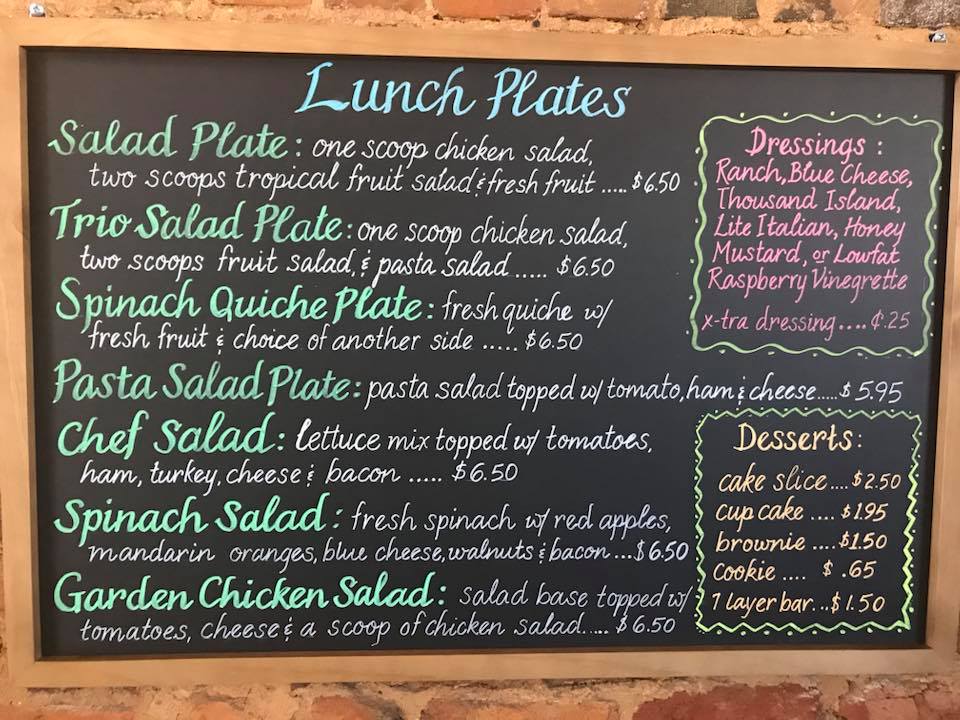 Lunch Plates
Salad Plate: one scoop chicken salad,
two scoops tropical fruit salad & fresh fruit ..... $6.50
Trio Salad Plate: one scoop chicken salad,
two scoops fruit salad, & pasta salad ..... $6.50
Spinach Quiche Plate: fresh quiche w/
fresh fruit & choice of another side ..... $6.50
Pasta Salad Plate: pasta salad topped w/ tomato, ham & cheese ..... $5.95
Chef Salad: lettuce mix topped w/ tomatoes,
ham, turkey, cheese & bacon ..... $6.50
Spinach Salad: fresh spinach w/ red apples,
mandarin oranges, blue cheese, walnuts & bacon ... $6.50
Garden Chicken Salad: salad base topped w/
tomatoes, cheese & a scoop of chicken salad ..... $6.50
Dressings:
Ranch, Blue Cheese,
Thousand Island,
Lite Italian, Honey
Mustard, or Lowfat
Raspberry Vinegrette
x-tra dressing .... ¢.25
Desserts:
cake slice .... $2.50
cup cake .... $1.95
brownie .... $1.50
cookie .... $.65
7 layer bar... $1.50